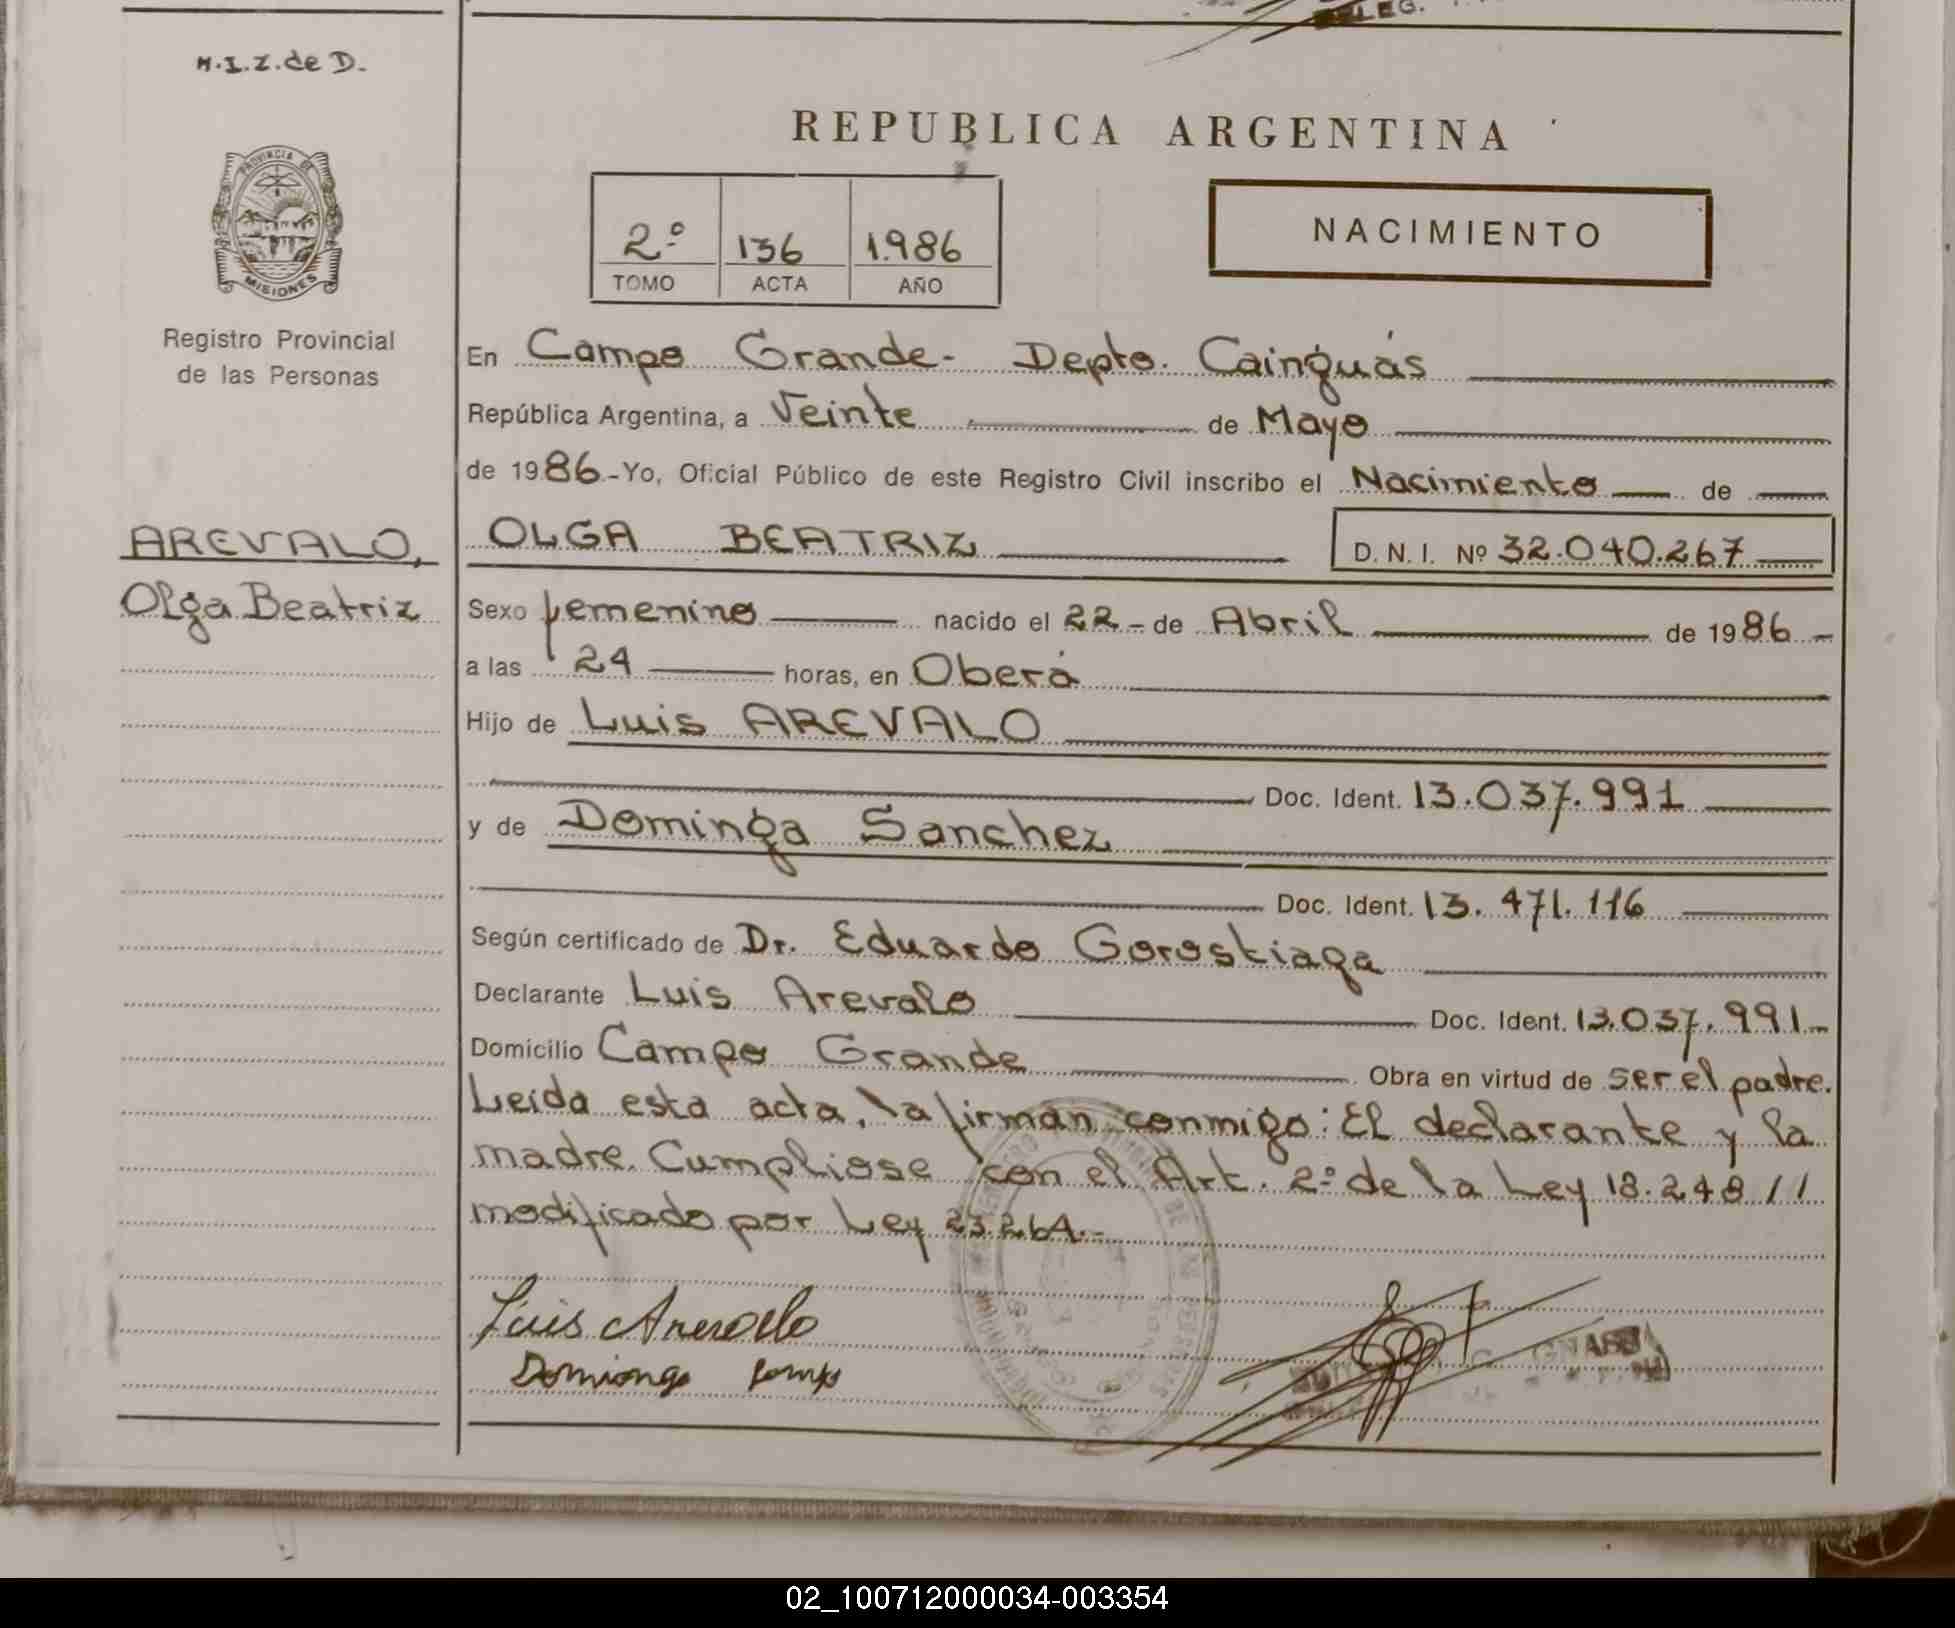 LEG.
M.I.Z. de D.
PROVINCIA DE
MISIONES
Registro Provincial
de las Personas
AREVALO,
Olga Beatriz
REPUBLICA ARGENTINA
2º 136 1.986
TOMO ACTA AÑO
NACIMIENTO
En Campo Grande- Depto. Cainguás
República Argentina, a Veinte de Mayo
de 1986.-Yo, Oficial Público de este Registro Civil inscribo el Nacimiento de
OLGA BEATRIZ D. N. I. Nº 32.040.267
Sexo femenino nacido el 22- de Abril de 1986
a las 24 horas, en Oberá
Hijo de Luis AREVALO
Doc. Ident. 13.037.991
y de Dominga Sanchez
Doc. Ident. 13.471.116
Según certificado de Dr. Eduardo Gorostiaga
Declarante Luis Arevalo Doc. Ident. 13.037.991.-
Domicilio Campo Grande Obra en virtud de ser el padre.
Leída esta acta, la firman conmigo: El declarante y la
madre. Cumpliose con el Art. 2º de la Ley 18.248//
modificado por Ley 23.264.-
Luis Arevalo
Dominga
02_100712000034-003354